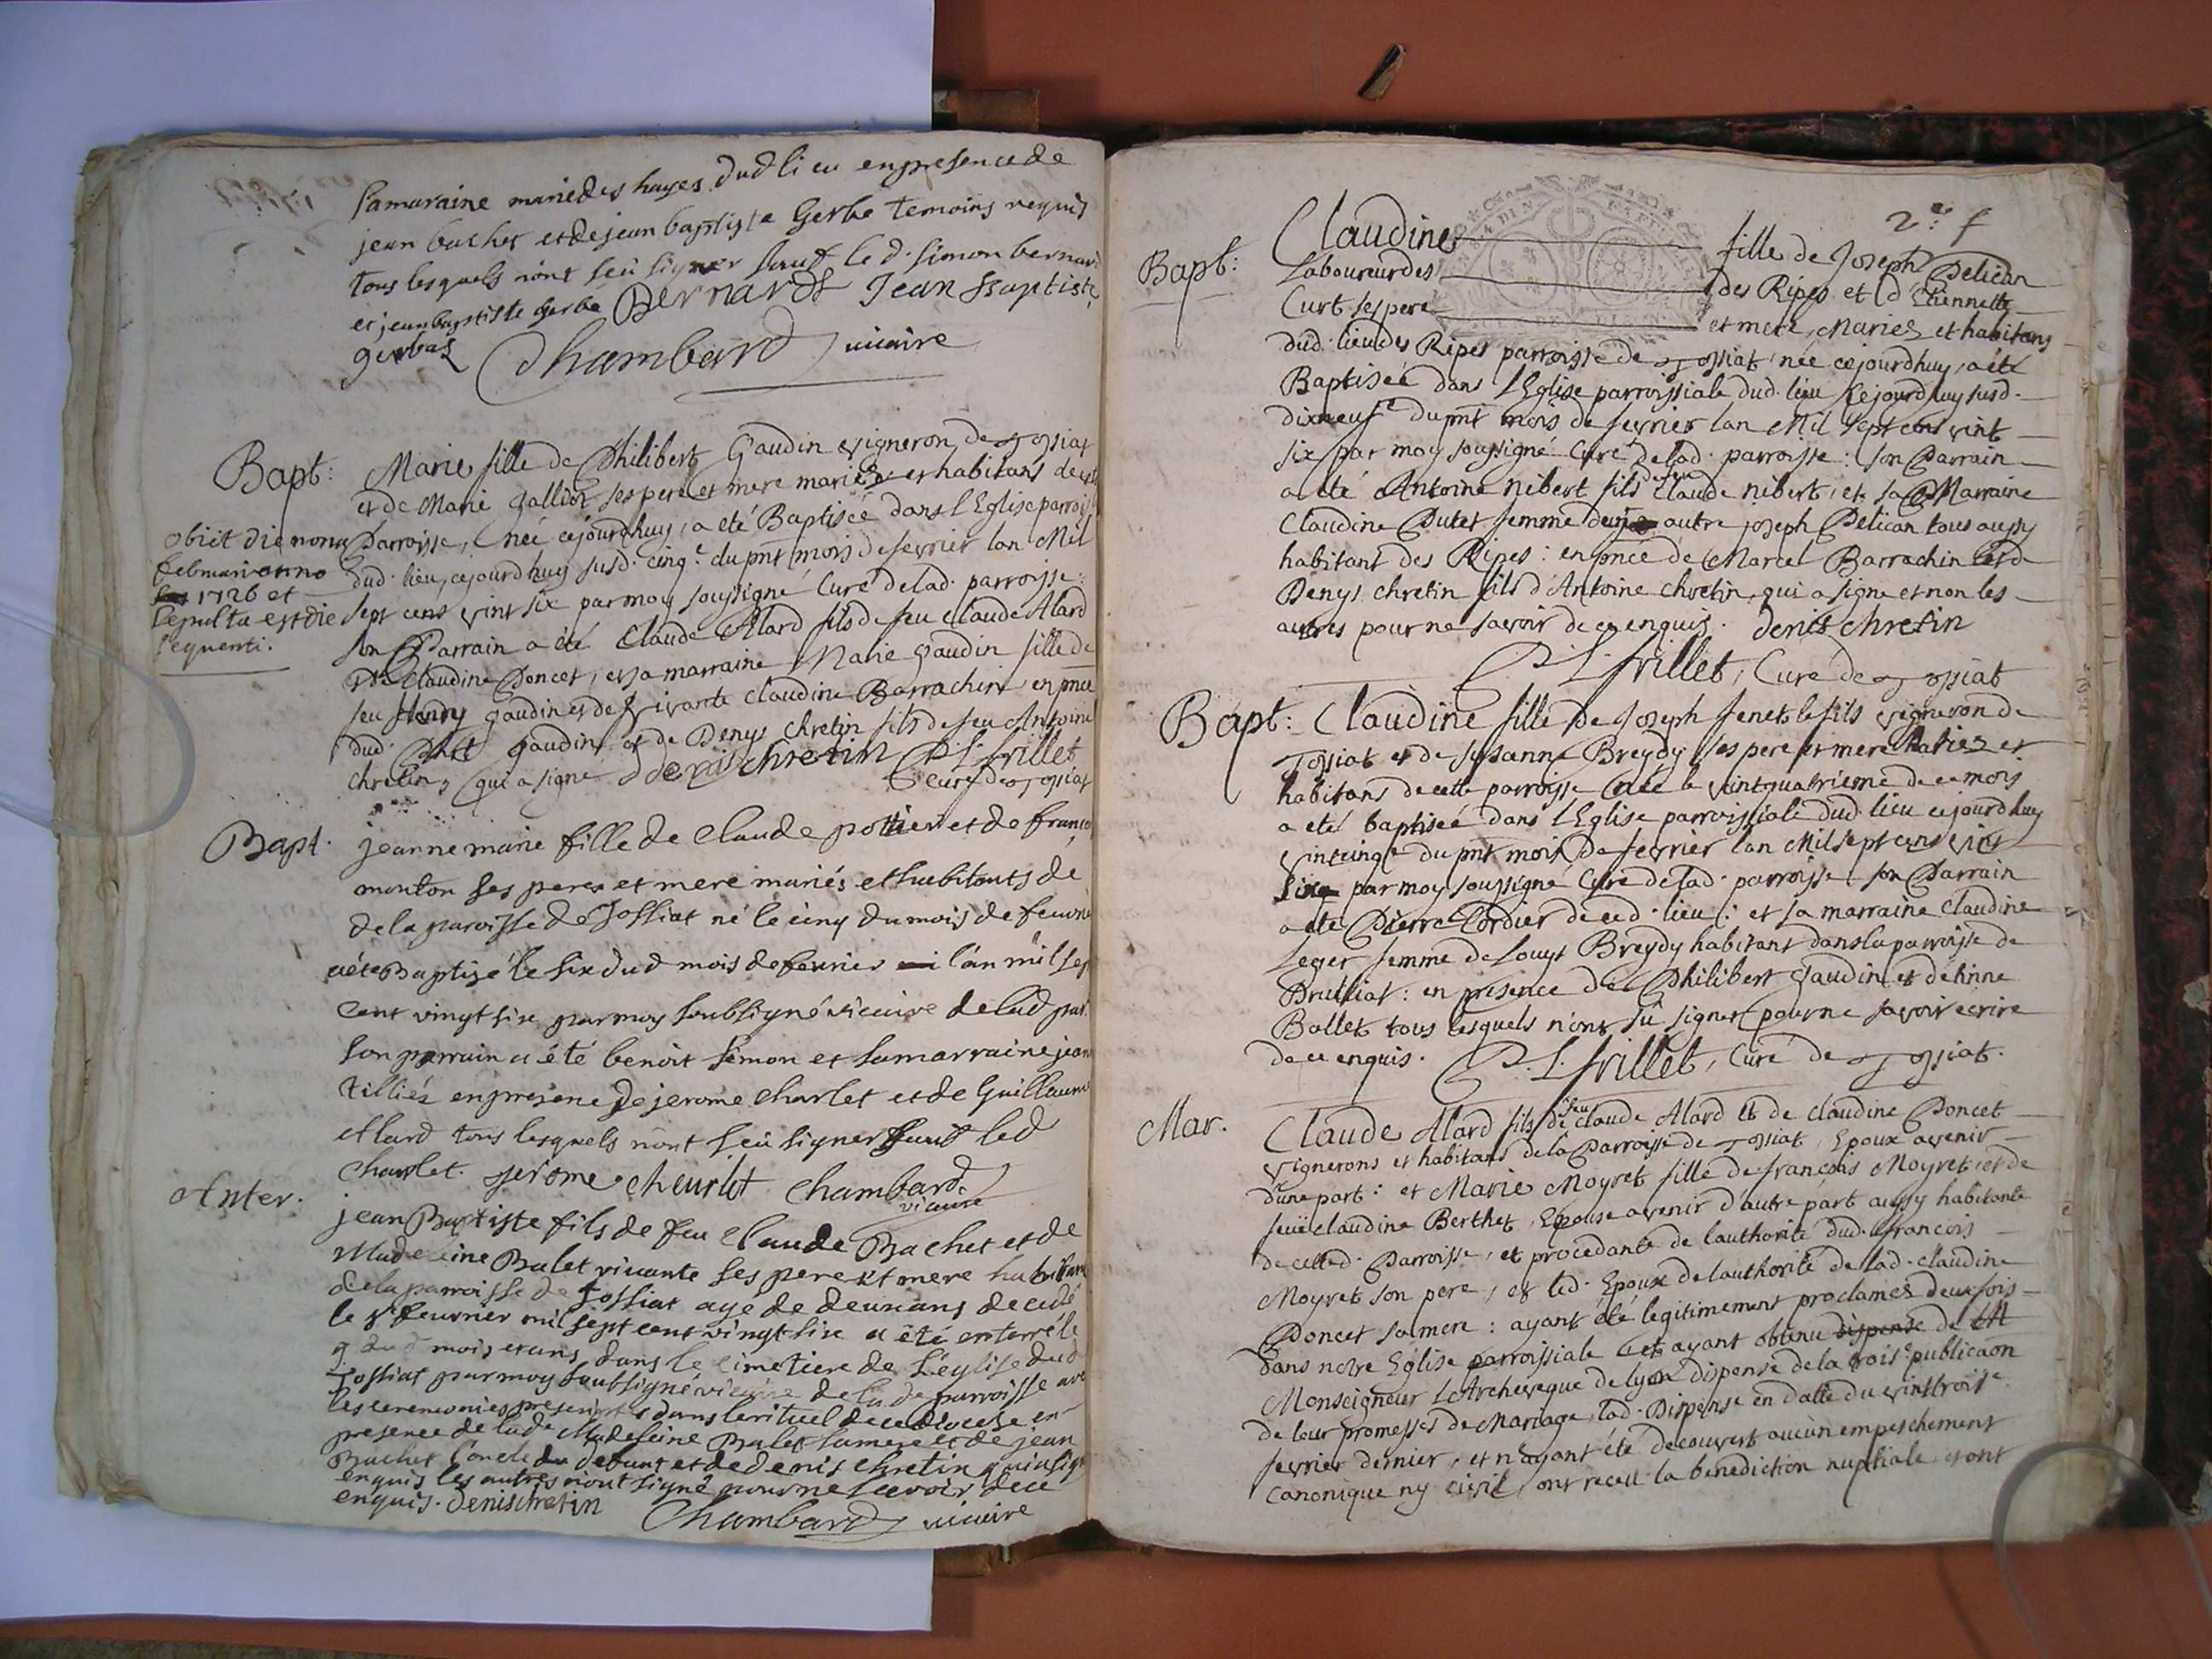 sa maraine marie des hayes dud lieu en presence de
jean buchet et de jean baptiste Gerba temoins requis
tous lesquels n'ont seù signer sauf le d. simon bernard
et jean baptiste gerba Bernard Jean Baptiste
gerbaz Chambard vicaire
Bapt: Marie fille de Philibert Gaudin vigneron de Tossiat
et de Marie Galliot ses pere et mere mariéz et habitans de cette
Parroisse, née cejourdhuy, a eté Baptisée dans l'Eglise parroiss
dud. lieu, cejourdhuy susd. cinqe. du pnt mois de fevrier lan Mil
sept cens vint six par moy soussigné Curé de lad. parroisse:
son Parrain a été Claude Alard fils de feu Claude Alard
et de Claudine Poncet, et sa marraine Marie Gaudin fille de
feu Henry Gaudin et de vivante Claudine Barrachin en pnce
dud. Phil Gaudin et de Denys Chretin fils de feu Antoine
chretin, qui a signé denis chretin P. L. frillet
Curé de Tossiat
obiit die nona
februari anno
1726 et
sepulta est die
sequenti.
Bapt. jeanne marie fille de claude pottier et de franco
monton ses peres et mere mariés et habitants de
de la paroisse de Tossiat né le cinq du mois de feuvrier
a été Baptizé le six dud mois de feuvrier l'an mil sep
cent vingt six par moy soubsigné vicaire de lad par.
son parrain a été benoit simon et sa marraine jean
tilliéz en presene de jerome charlet et de Guillaume
Allard tous lesquels n'ont seù signer sauf led
Charlet. jerome cheurlet Chambard
vicaire
Anter. jean Baptiste fils de feu Claude Bachet et de
Madeleine Balet vivante ses pere et mere habitans
de la parroisse de Tossiat agé de deux ans decedé
le 8e feuvrier mil sept cent vingt six a été enterré le
9 dud mois et ans dans le cimetiere de l'église dud
Tossiat par moy soubsigné vicaire de lad parroisse ave
les ceremonies prescriptes dans le rituel de ce diocese en
presence de lade Madeleine Balet sa mere et de jean
Buchet l'oncle du defunt et de denis chretin qui a sign
enquis les autres n'ont signé pour ne scavoir de ce
enquis. denis chretin Chambard vicaire
2e f
Bapt: Claudine fille de Joseph Pelican
Laboureur des des Ripes et d'Etiennette
Curt ses pere et mere, Mariez et habitans
dud. lieu des Ripes parroisse de Tossiat née cejourdhuy, a été
Baptisée dans l'Eglise parroissiale dud. lieu cejourdhuy susd.
dixneufe du pnt mois de fevrier lan Mil sept cens vint
six par moy soussigné Curé de lad. parroisse: son Parrain
a eté Antoine Nibert fils de feu Claude Nibert, et sa Marraine
Claudine Putet femme dun autre joseph Pelican tous aussy
habitant des Ripes: en pnce de Marcel Barrachin et de
Denys chretin fils d'Antoine chretin, qui a signé et non les
autres pour ne savoir de ce enquis. denis chretin
P. L. frillet, Curé de Tossiat
Bapt: Claudine fille de Joseph fenet le fils vigneron de
Tossiat et de Susanne Breydy ses pere et mere Mariez et
habitans de cette parroisse née le vintquatrieme de ce mois
a eté baptisée dans l'Eglise parroissiale dud. lieu cejourdhuy
vintcinqe du pnt mois de fevrier lan Mil sept cens vint
six par moy soussigné Curé de lad. parroisse son Parrain
a eté Pierre Cordier de ced. lieu: et sa marraine Claudine
Leger femme de Louys Breydy habitant dans la parroisse de
Druilliat: en presence de Philibert Gaudin et de
Ballet tous lesquels n'ont sù signer pour ne savoir ecrire
de ce enquis. P. L. frillet, Curé de Tossiat.
Mar. Claude Alard fils de feu claude Alard et de claudine Poncet
vignerons et habitans de la Parroisse de Tossiat, Epoux avenir
dune part: et Marie Moyret fille de francois Moyret et de
feuë Claudine Berthet, Epouse avenir d'autre part aussy habitante
de cetted. Parroisse, et procedante de lauthorité dud. francois
Moyret son pere, et led. Epoux de lauthorité de lad. claudine
Poncet sa mere: ayant été legitimement proclamez deux fois
dans notre Eglise parroissiale et ayant obtenu dispense de M
Monseigneur l'Archeveque de lyon dispense de la troise publicaon
de leur promesses de Mariage, lad. Dispense en datte du vinttroise
fevrier dernier, et n'ayant été decouvert aucun empeschement
canonique ny civil, ont receu la benediction nuptiale et ont